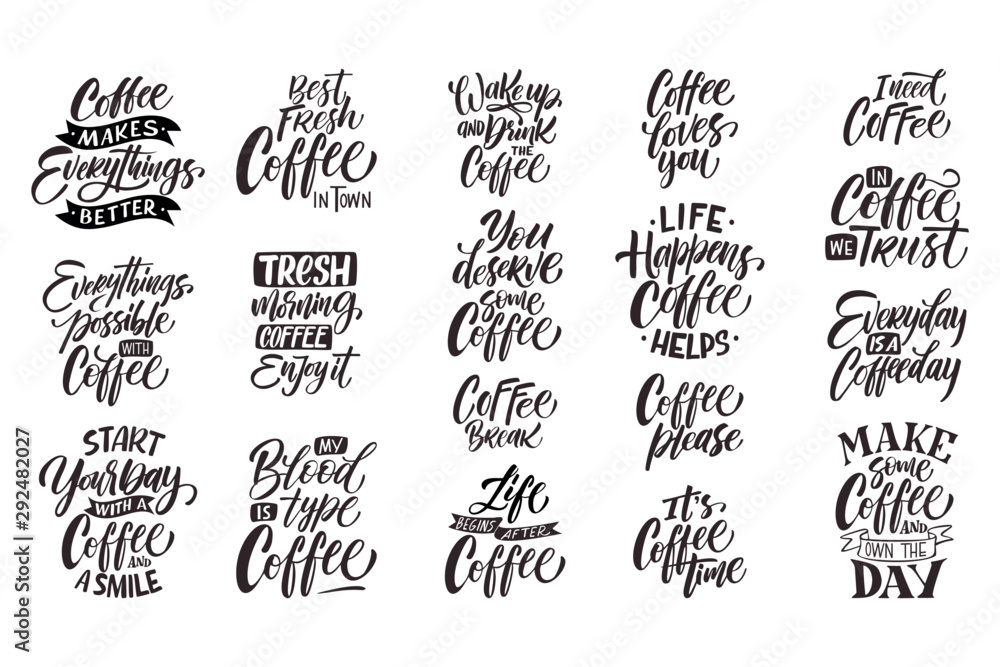 Coffee
MAKES
Everythings
BETTER
Best
Fresh
Coffee
IN TOWN
Wake up
AND Drink
THE
Coffee
Coffee
loves
you
I need
Coffee
IN
Coffee
WE Trust
Everythings
possible
WITH
Coffee
TRESH
morning
COFFEE
Enjoy it
You
deserve
some
Coffee
LIFE
Happens
Coffee
HELPS
Everyday
IS A
Coffeeday
START
Your Day
WITH A
Coffee
AND
A SMILE
MY
Blood
IS type
Coffee
Coffee
Break
Life
BEGINS AFTER
Coffee
Coffee
please
It's
Coffee
time
MAKE
some
Coffee
AND
OWN THE
DAY
Adobe Stock | #292482027